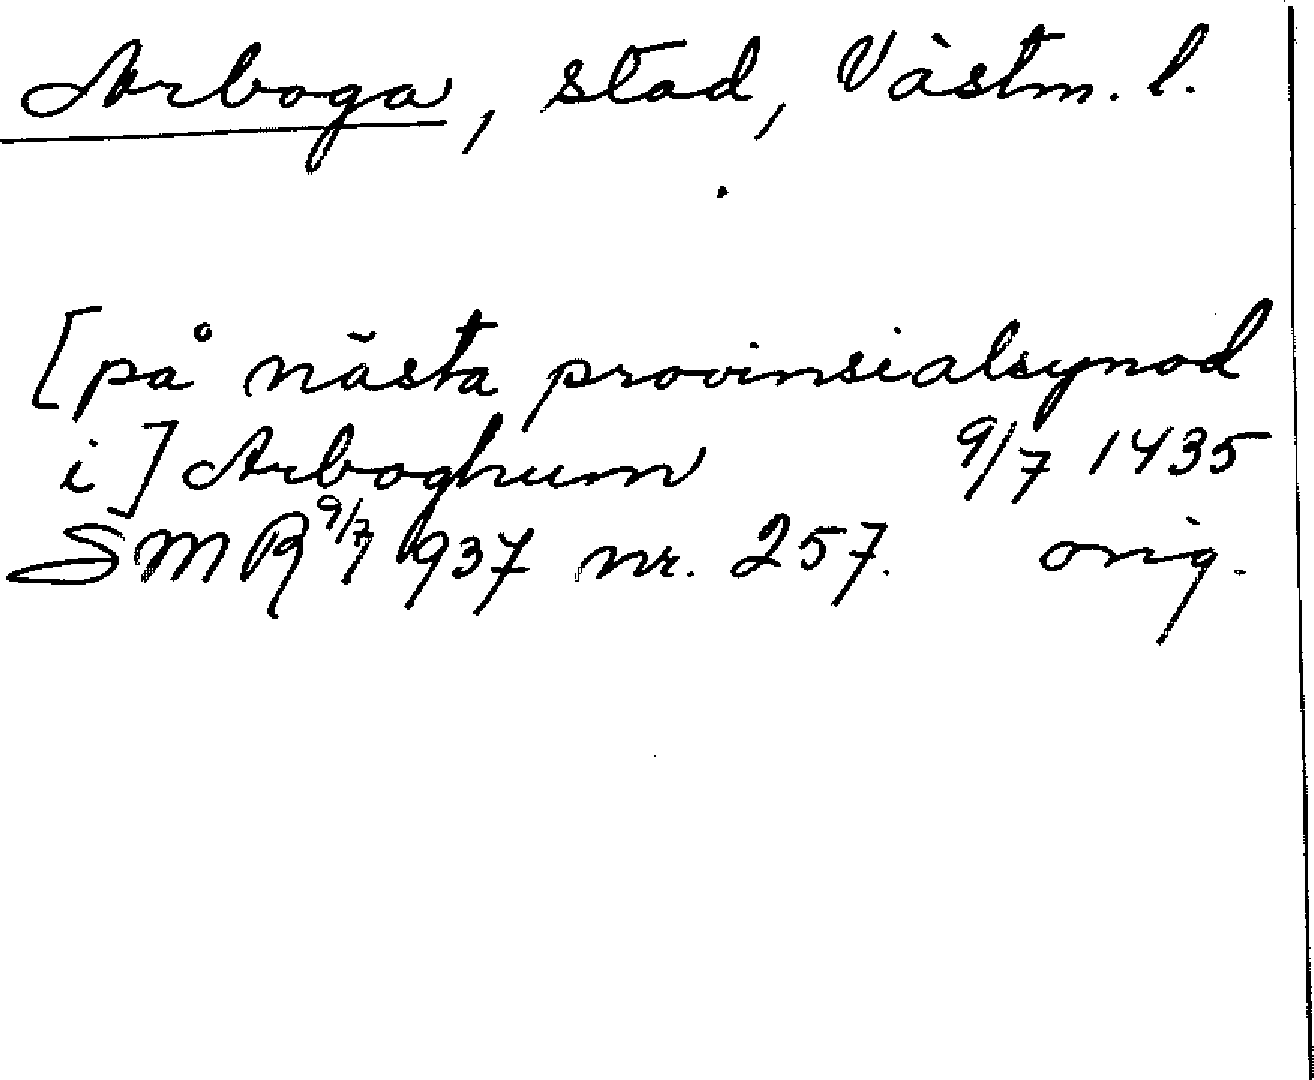 Arboga, stad, Västm. l.
[på nästa provinsialsynod
i] Arboghum 9/7 1435
SMR 9/7 1937 nr. 257. orig.